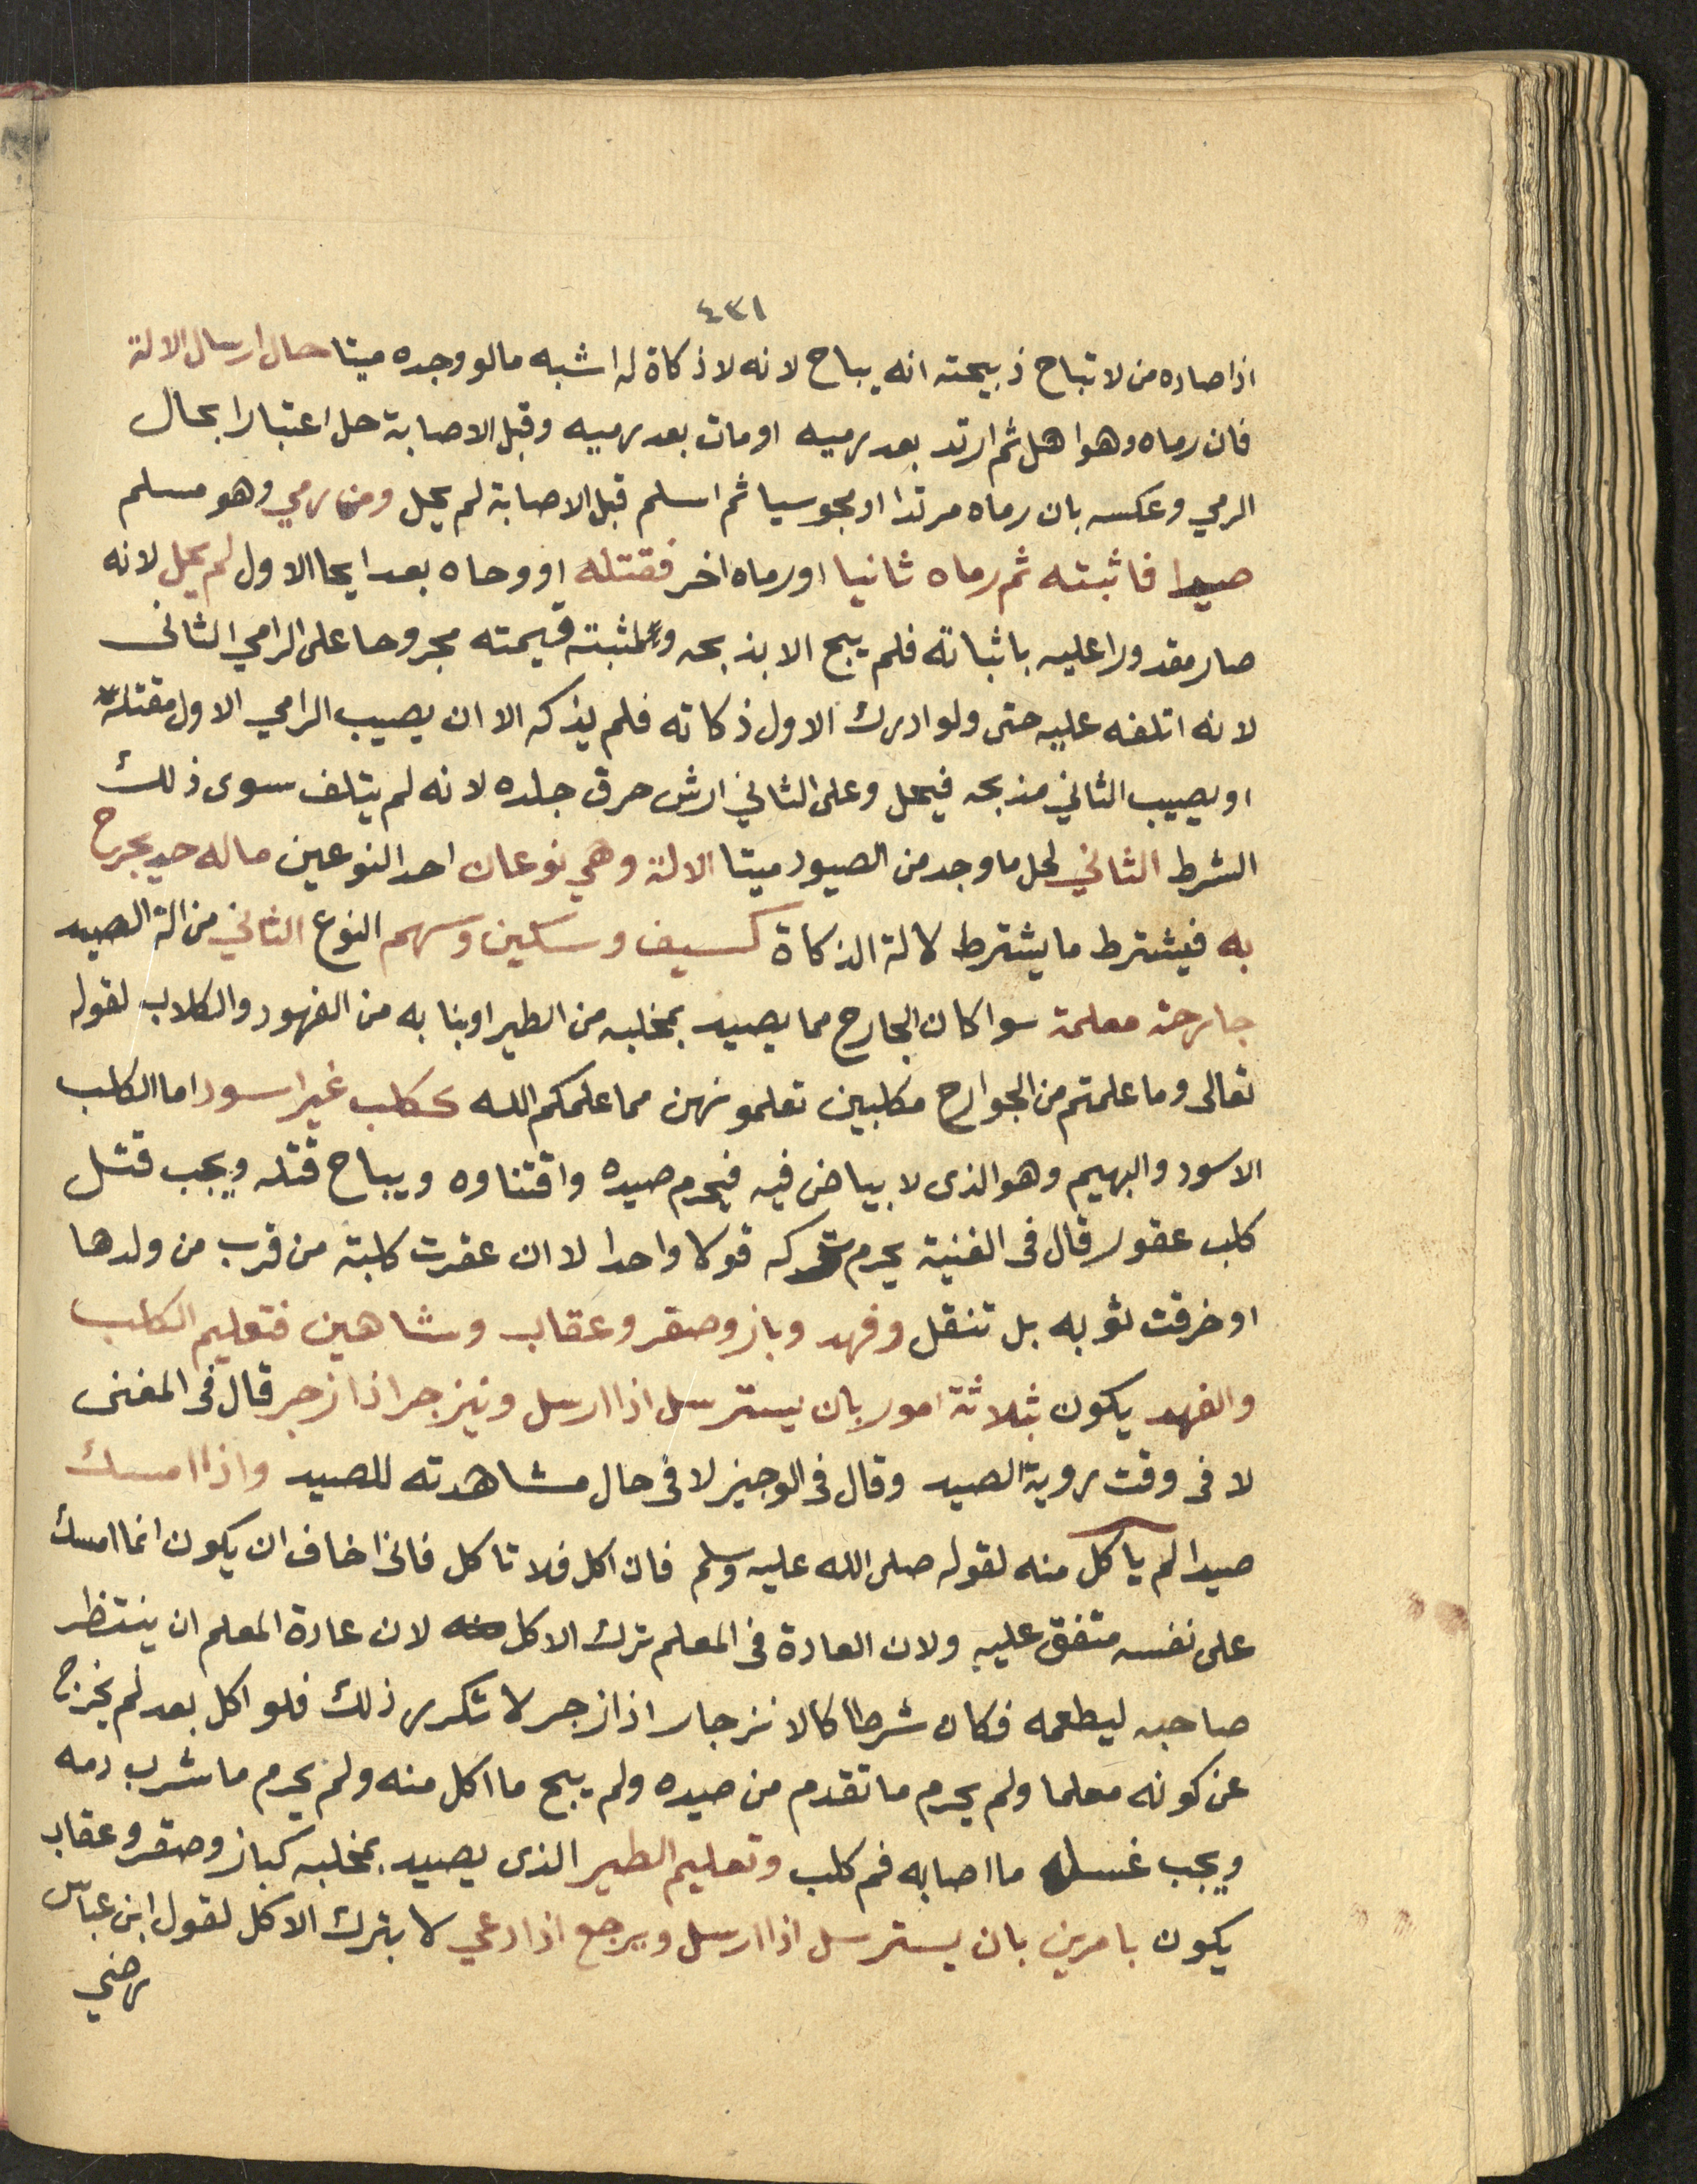 ٤٣١
اذا صاده من لا تباح ذبيحته انه يباح لانه لا ذكاة له اشبه ما لو وجده ميتا حال ارسال الالة
فان رماه وهو اهل ثم ارتد بعد رميه او مات بعد رميه وقبل الاصابة حل اعتبارا بحال
الرمي وعكسه بان رماه مرتدا او مجوسيا ثم اسلم قبل الاصابة لم يحل ومن رمي وهو مسلم
صيدا فاثبته ثم رماه ثانيا او رماه اخر فقتله او وحاه بعد ايحا الاول لم يحل لانه
صار مقدورا عليه باثباته فلم يبح الا بذبحه ولمثبته قيمته مجروحا على الرامي الثانى
لانه اتلفه عليه حتى ولو ادرك الاول ذكاته فلم يذكه الا ان يصيب الرامي الاول مقتله
او يصيب الثاني مذبحه فيحل وعلى الثاني ارش خرق جلده لانه لم يتلف سوى ذلك
الشرط الثاني لحل ما وجد من الصيود ميتا الالة وهي نوعان احد النوعين ما له حد يجرح
به فيشترط ما يشترط لالة الذكاة كسيف وسكين وسهم النوع الثاني من الة الصيد
جارحة معلمة سوا كان الجارح مما يصيد بمخلبه من الطير او بنابه من الفهود والكلاب لقوله
تعالى وما علمتم من الجوارح مكلبين تعلمونهن مما علمكم الله ككلب غير اسود اما الكلب
الاسود والبهيم وهو الذى لا بياض فيه فيحرم صيده واقتناوه ويباح قتله ويجب قتل
كلب عقور قال فى الغنية يحرم تركه قولا واحدا لا ان عقرت كلبة من قرب من ولدها
او خرقت ثوبه بل تنقل وفهد وباز وصقر وعقاب وشاهين فتعليم الكلب
والفهد يكون بثلاثة امور بان يسترسل اذا ارسل وينزجر اذا زجر قال فى المغنى
لا فى وقت روية الصيد وقال فى الوجيز لا فى حال مشاهدته للصيد واذا امسك
صيدا لم ياكل منه لقوله صلى الله عليه وسلم فان اكل فلا تاكل فانى اخاف ان يكون انما امسك
على نفسه متفق عليه ولان العادة فى المعلم ترك الاكل لان عادة المعلم ان ينتظر
صاحبه ليطعمه فكان شرطا كالانزجار اذا زجر لا تكرر ذلك فلو اكل بعد لم يخرج
عن كونه معلما ولم يحرم ما تقدم من صيده ولم يبح ما اكل منه ولم يحرم ما شرب دمه
ويجب غسله ما اصابه فم كلب وتعليم الطير الذى يصيد بمخلبه كباز وصقر وعقاب
يكون بامرين بان يسترسل اذا ارسل ويرجع اذا دعي لا بترك الاكل لقول ابن عباس
رضي